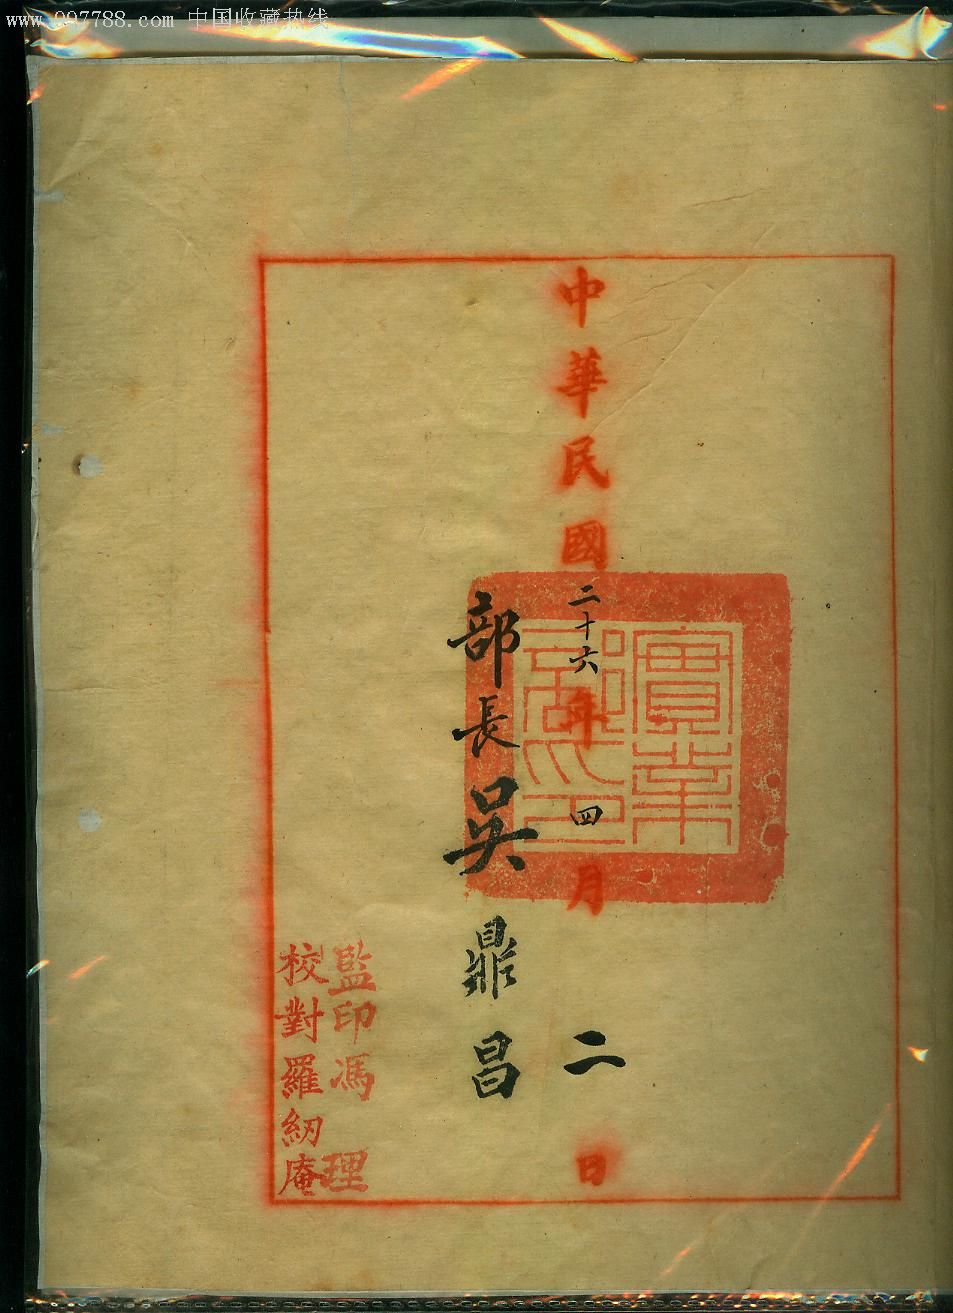 www.997788.com 中国收藏热线
中華民國二十六年四月二日
實業部印
部長吳鼎昌
監印馮理
校對羅紉庵